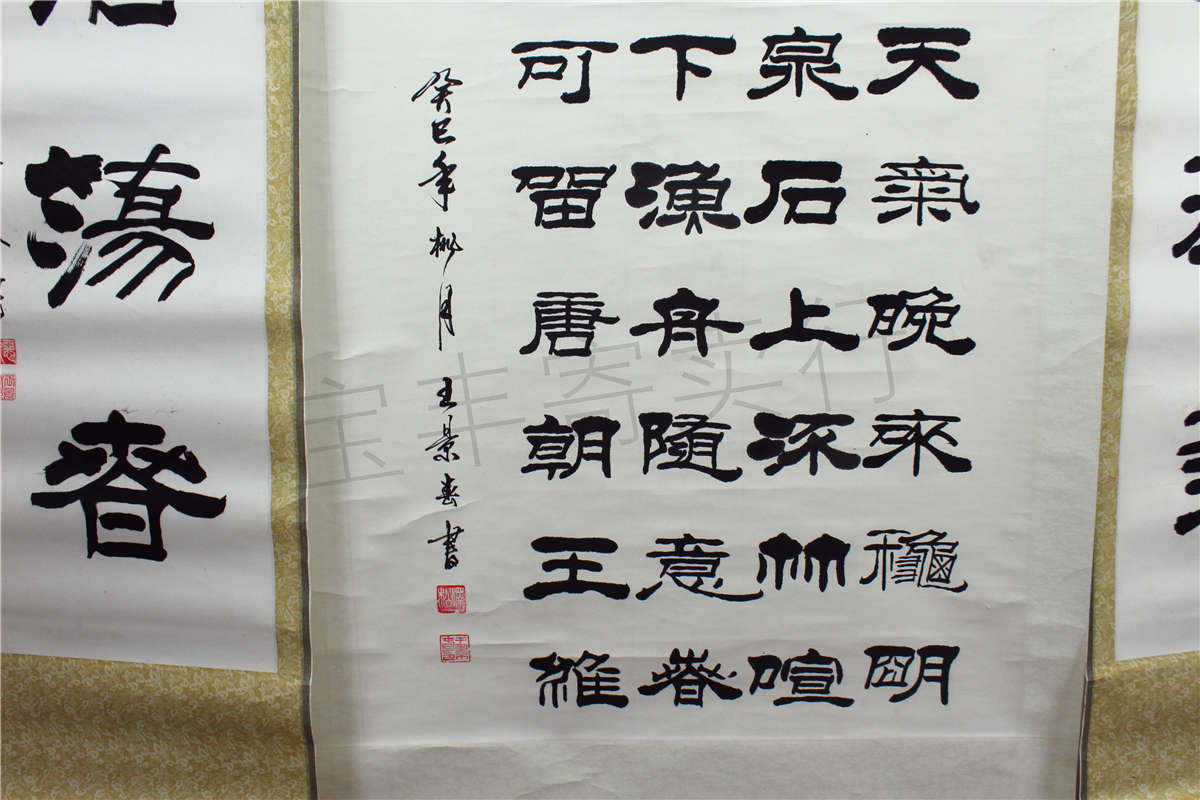 天氣晚來龝朙
泉石上流竹喧
下漁舟隨意春
可留唐朝王維
癸巳年桃月 王景春書
蕩春
宝丰寄卖行